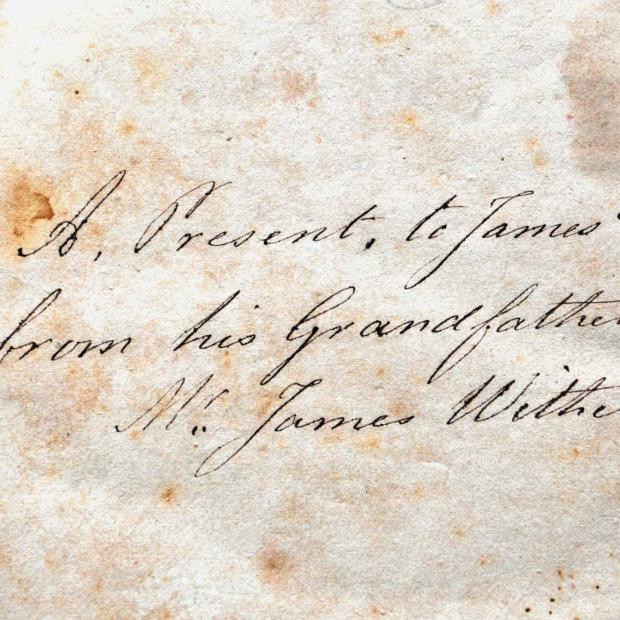 A, Present, to James
from his Grandfathe
Mr. James Withe